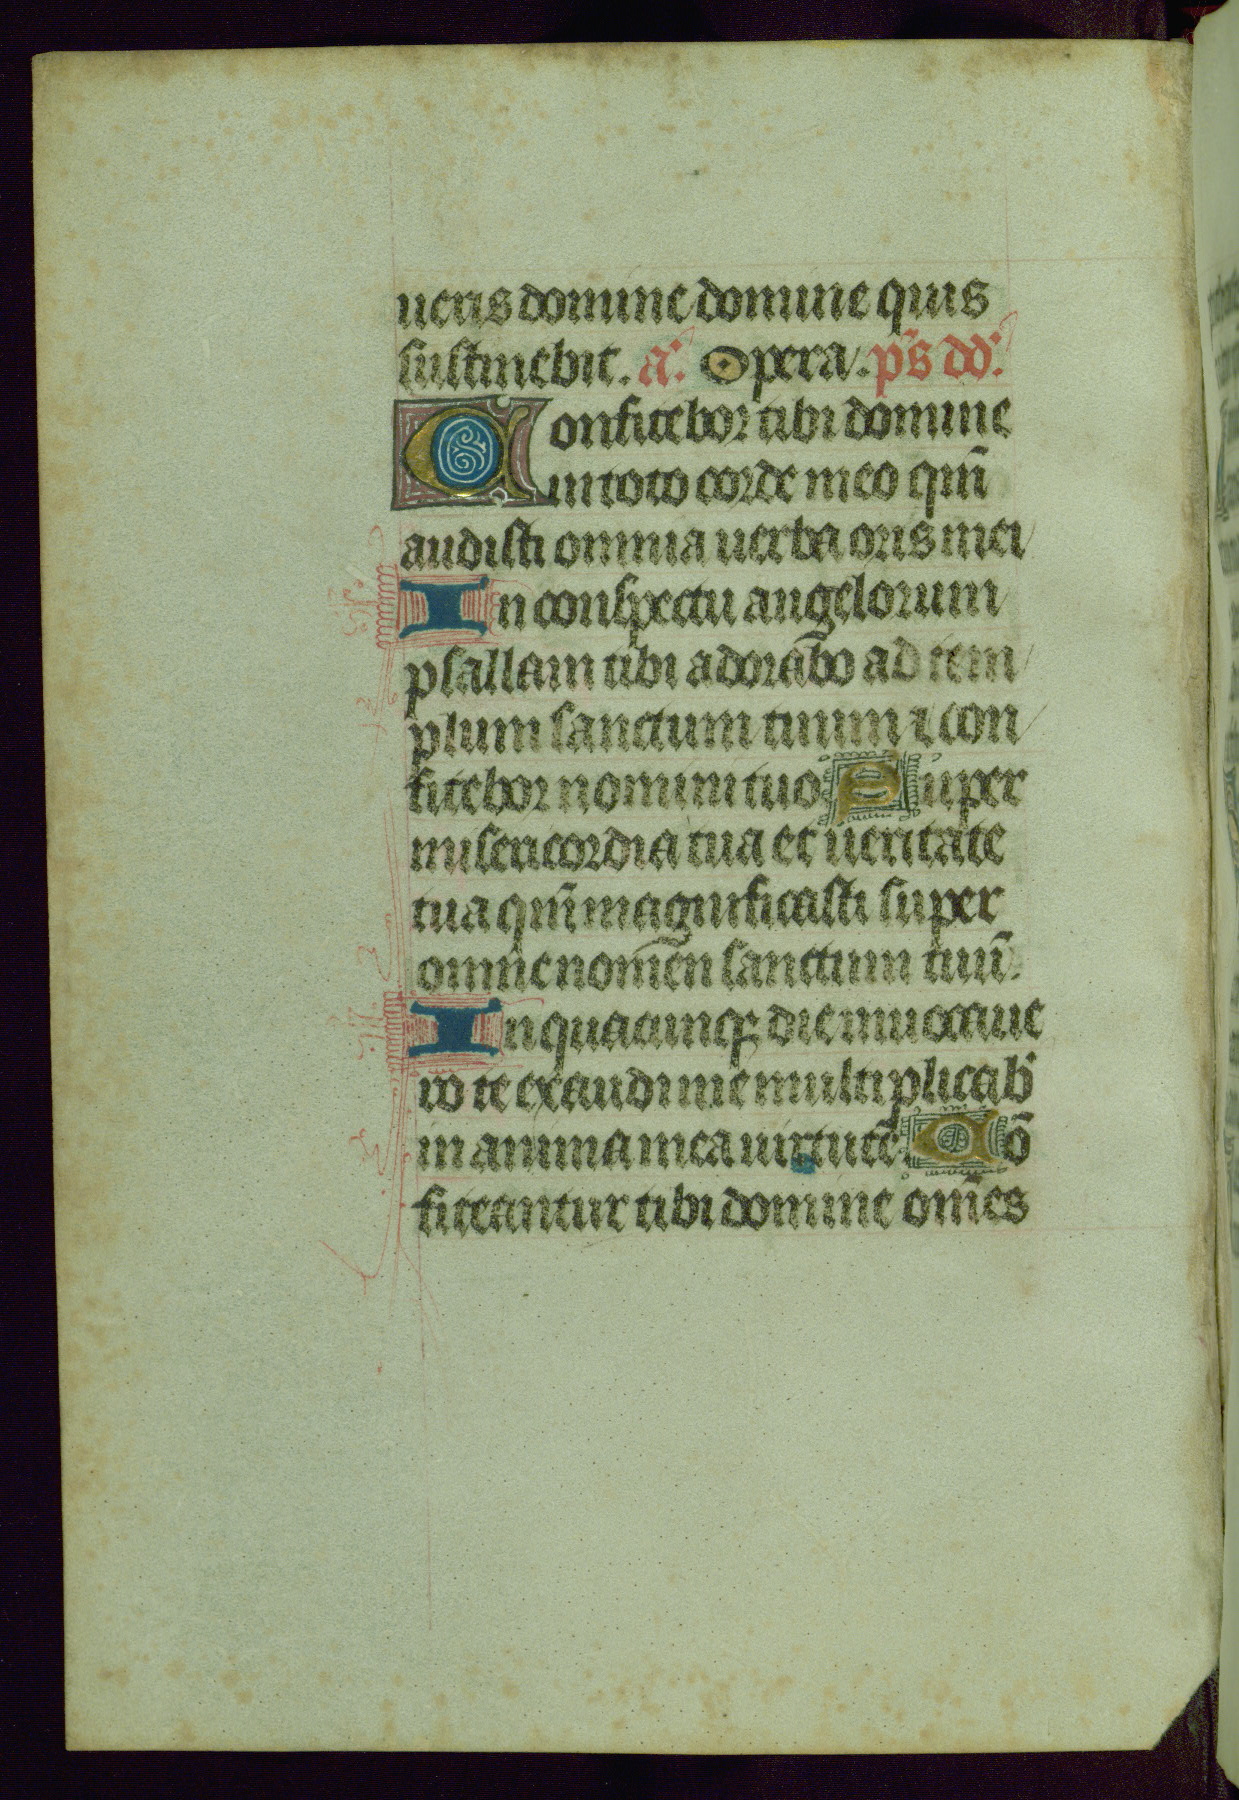 ueris domine domine quis
sustinebit. a᷑. Opera. p̄s dd̄.
Confitebor tibi domine
in toto corde meo qm̄
audisti omnia uerba oris mei
In conspectu angelorum
psallam tibi adorabo ad tem
plum sanctum tuum ⁊ con
fitebor nomini tuo Super
misericordia tua et ueritate
tua qm̄ magnificasti super
omne nomen sanctum tuū.
In quacumqꝫ die inuocaue
ro te exaudi me multiplicab̄
in anima mea uirtutē. Cō
fiteantur tibi domine om̄es